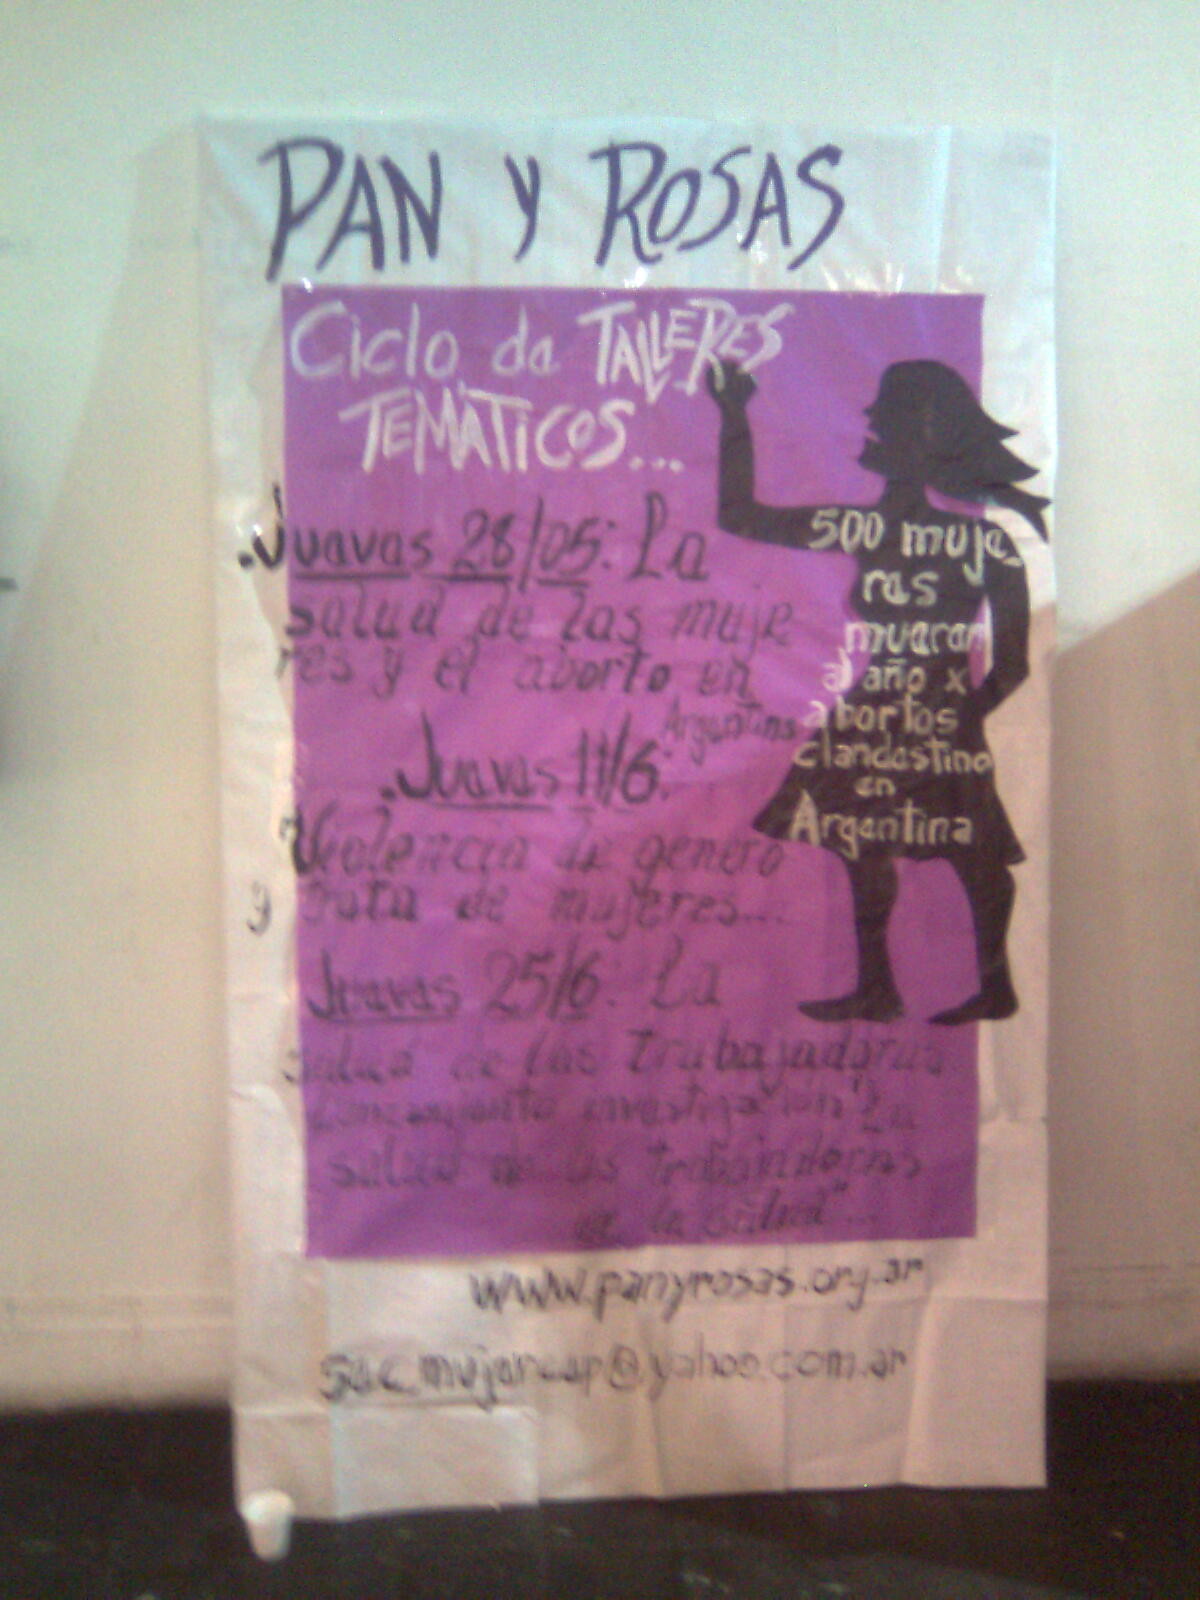 PAN Y ROSAS
Ciclo de TALLERES
TEMÁTICOS...
.Jueves 28/05: La
salud de las muje
res y el aborto en
Argentina
.Jueves 11/6:
Violencia de género
y trata de mujeres...
Jueves 25/6: La
salud de las trabajadoras.
Lanzamiento investigación "La
salud de las trabajadoras
de la salud"...
www.panyrosas.org.ar
500 muje
res
mueren
al año x
abortos
clandestino
en
Argentina